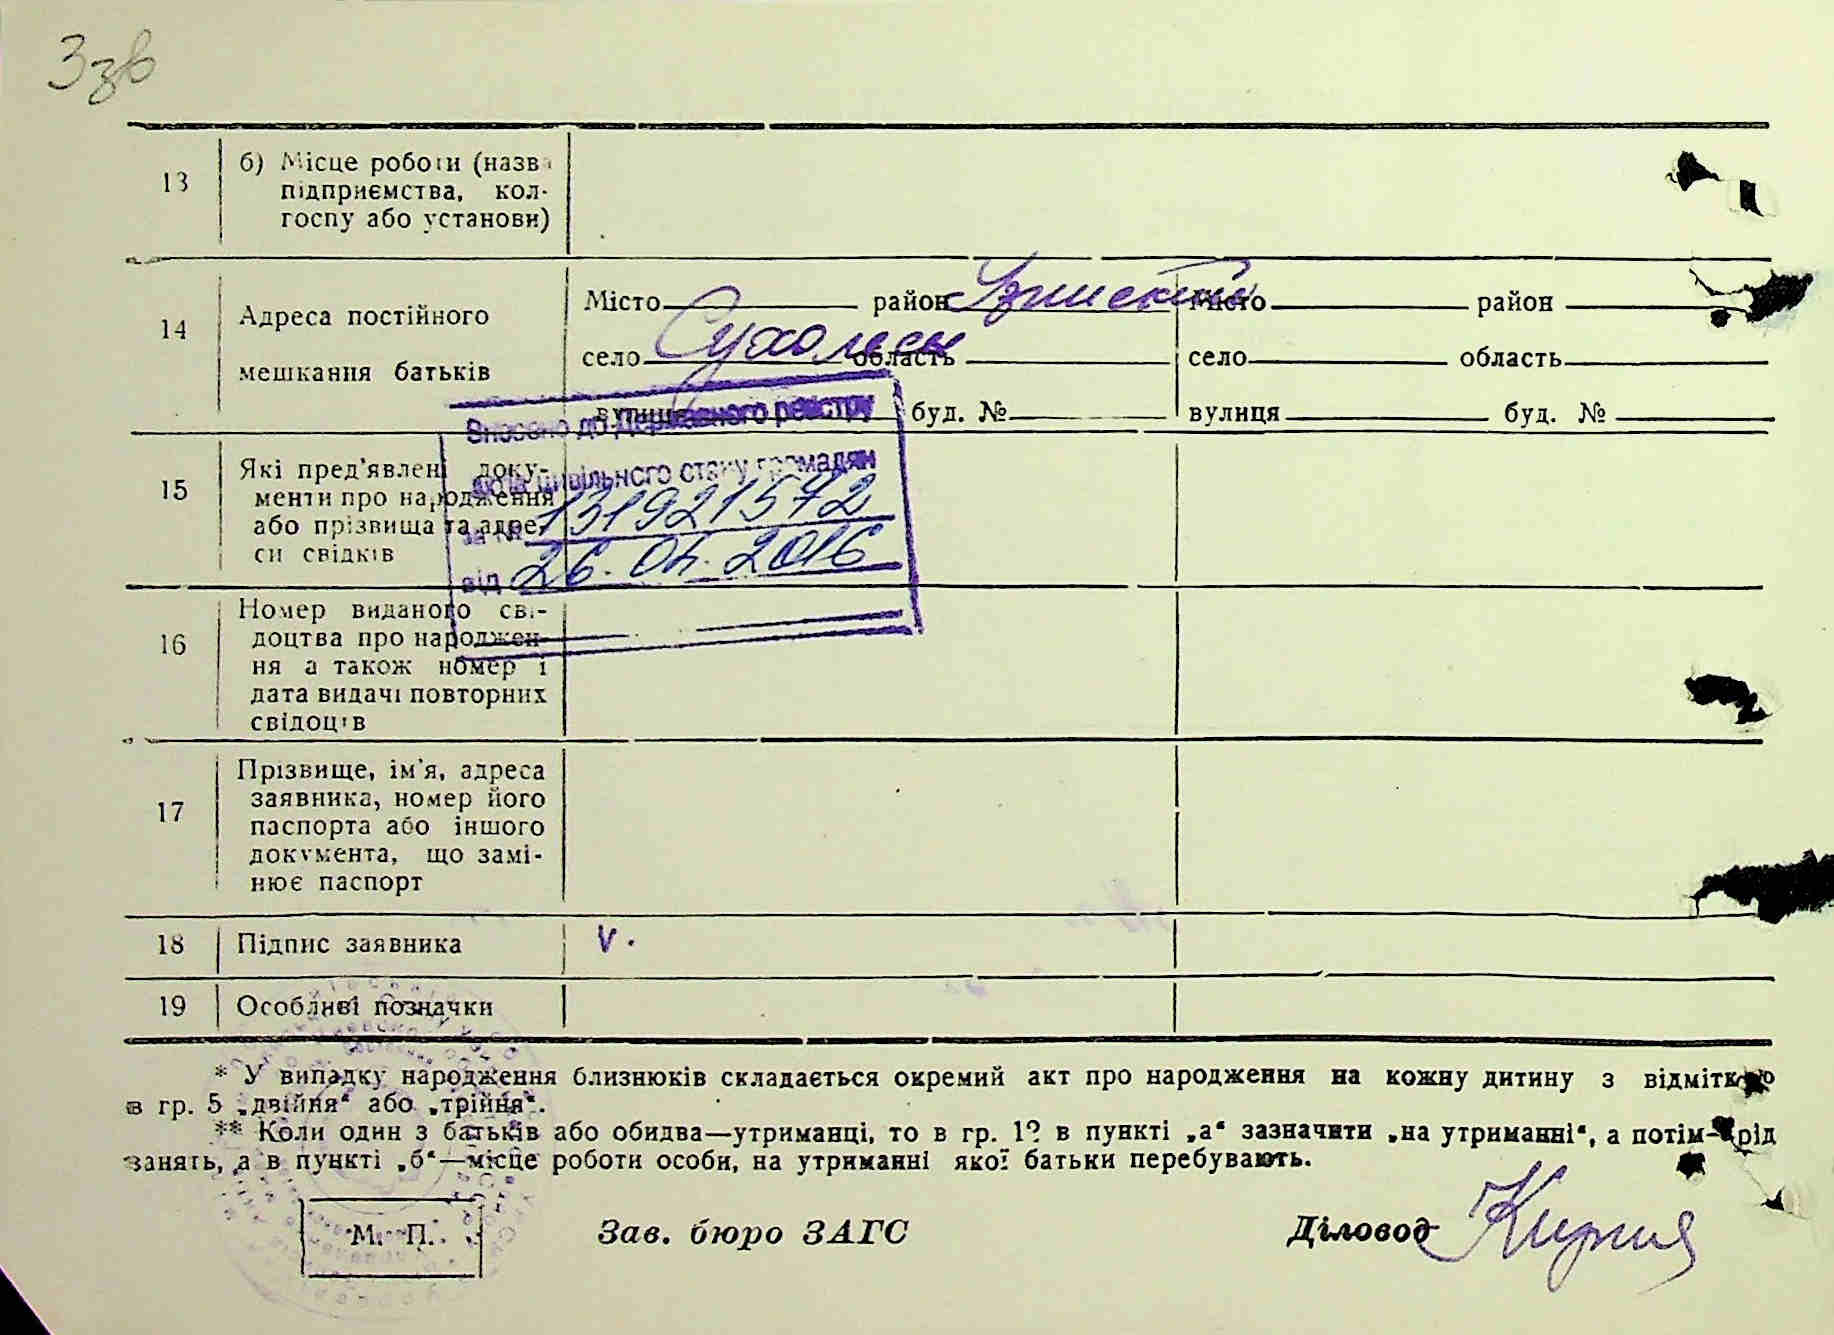 3зв
13
б) Місце роботи (назва
підприємства, кол-
госпу або установи)
14
Адреса постійного
мешкання батьків
Місто район Узинський
село Сухоліси область
вулиця буд. №
Місто район
село область
вулиця буд. №
Внесено до Державного реєстру
актів цивільного стану громадян
за № 131921572
від 26.04.2016
15
Які пред'явлені доку-
менти про народження
або прізвища та адре-
си свідків
16
Номер виданого сві-
доцтва про народжен-
ня а також номер і
дата видачі повторних
свідоцтв
17
Прізвище, ім'я, адреса
заявника, номер його
паспорта або іншого
документа, що замі-
нює паспорт
18 Підпис заявника V.
19 Особливі позначки
* У випадку народження близнюків складається окремий акт про народження на кожну дитину з відміткою
в гр. 5 „двійня“ або „трійня“.
** Коли один з батьків або обидва—утриманці, то в гр. 12 в пункті „а“ зазначити „на утриманні“, а потім—рід
занять, а в пункті „б“—місце роботи особи, на утриманні якої батьки перебувають.
М. П. Зав. бюро ЗАГС Діловод